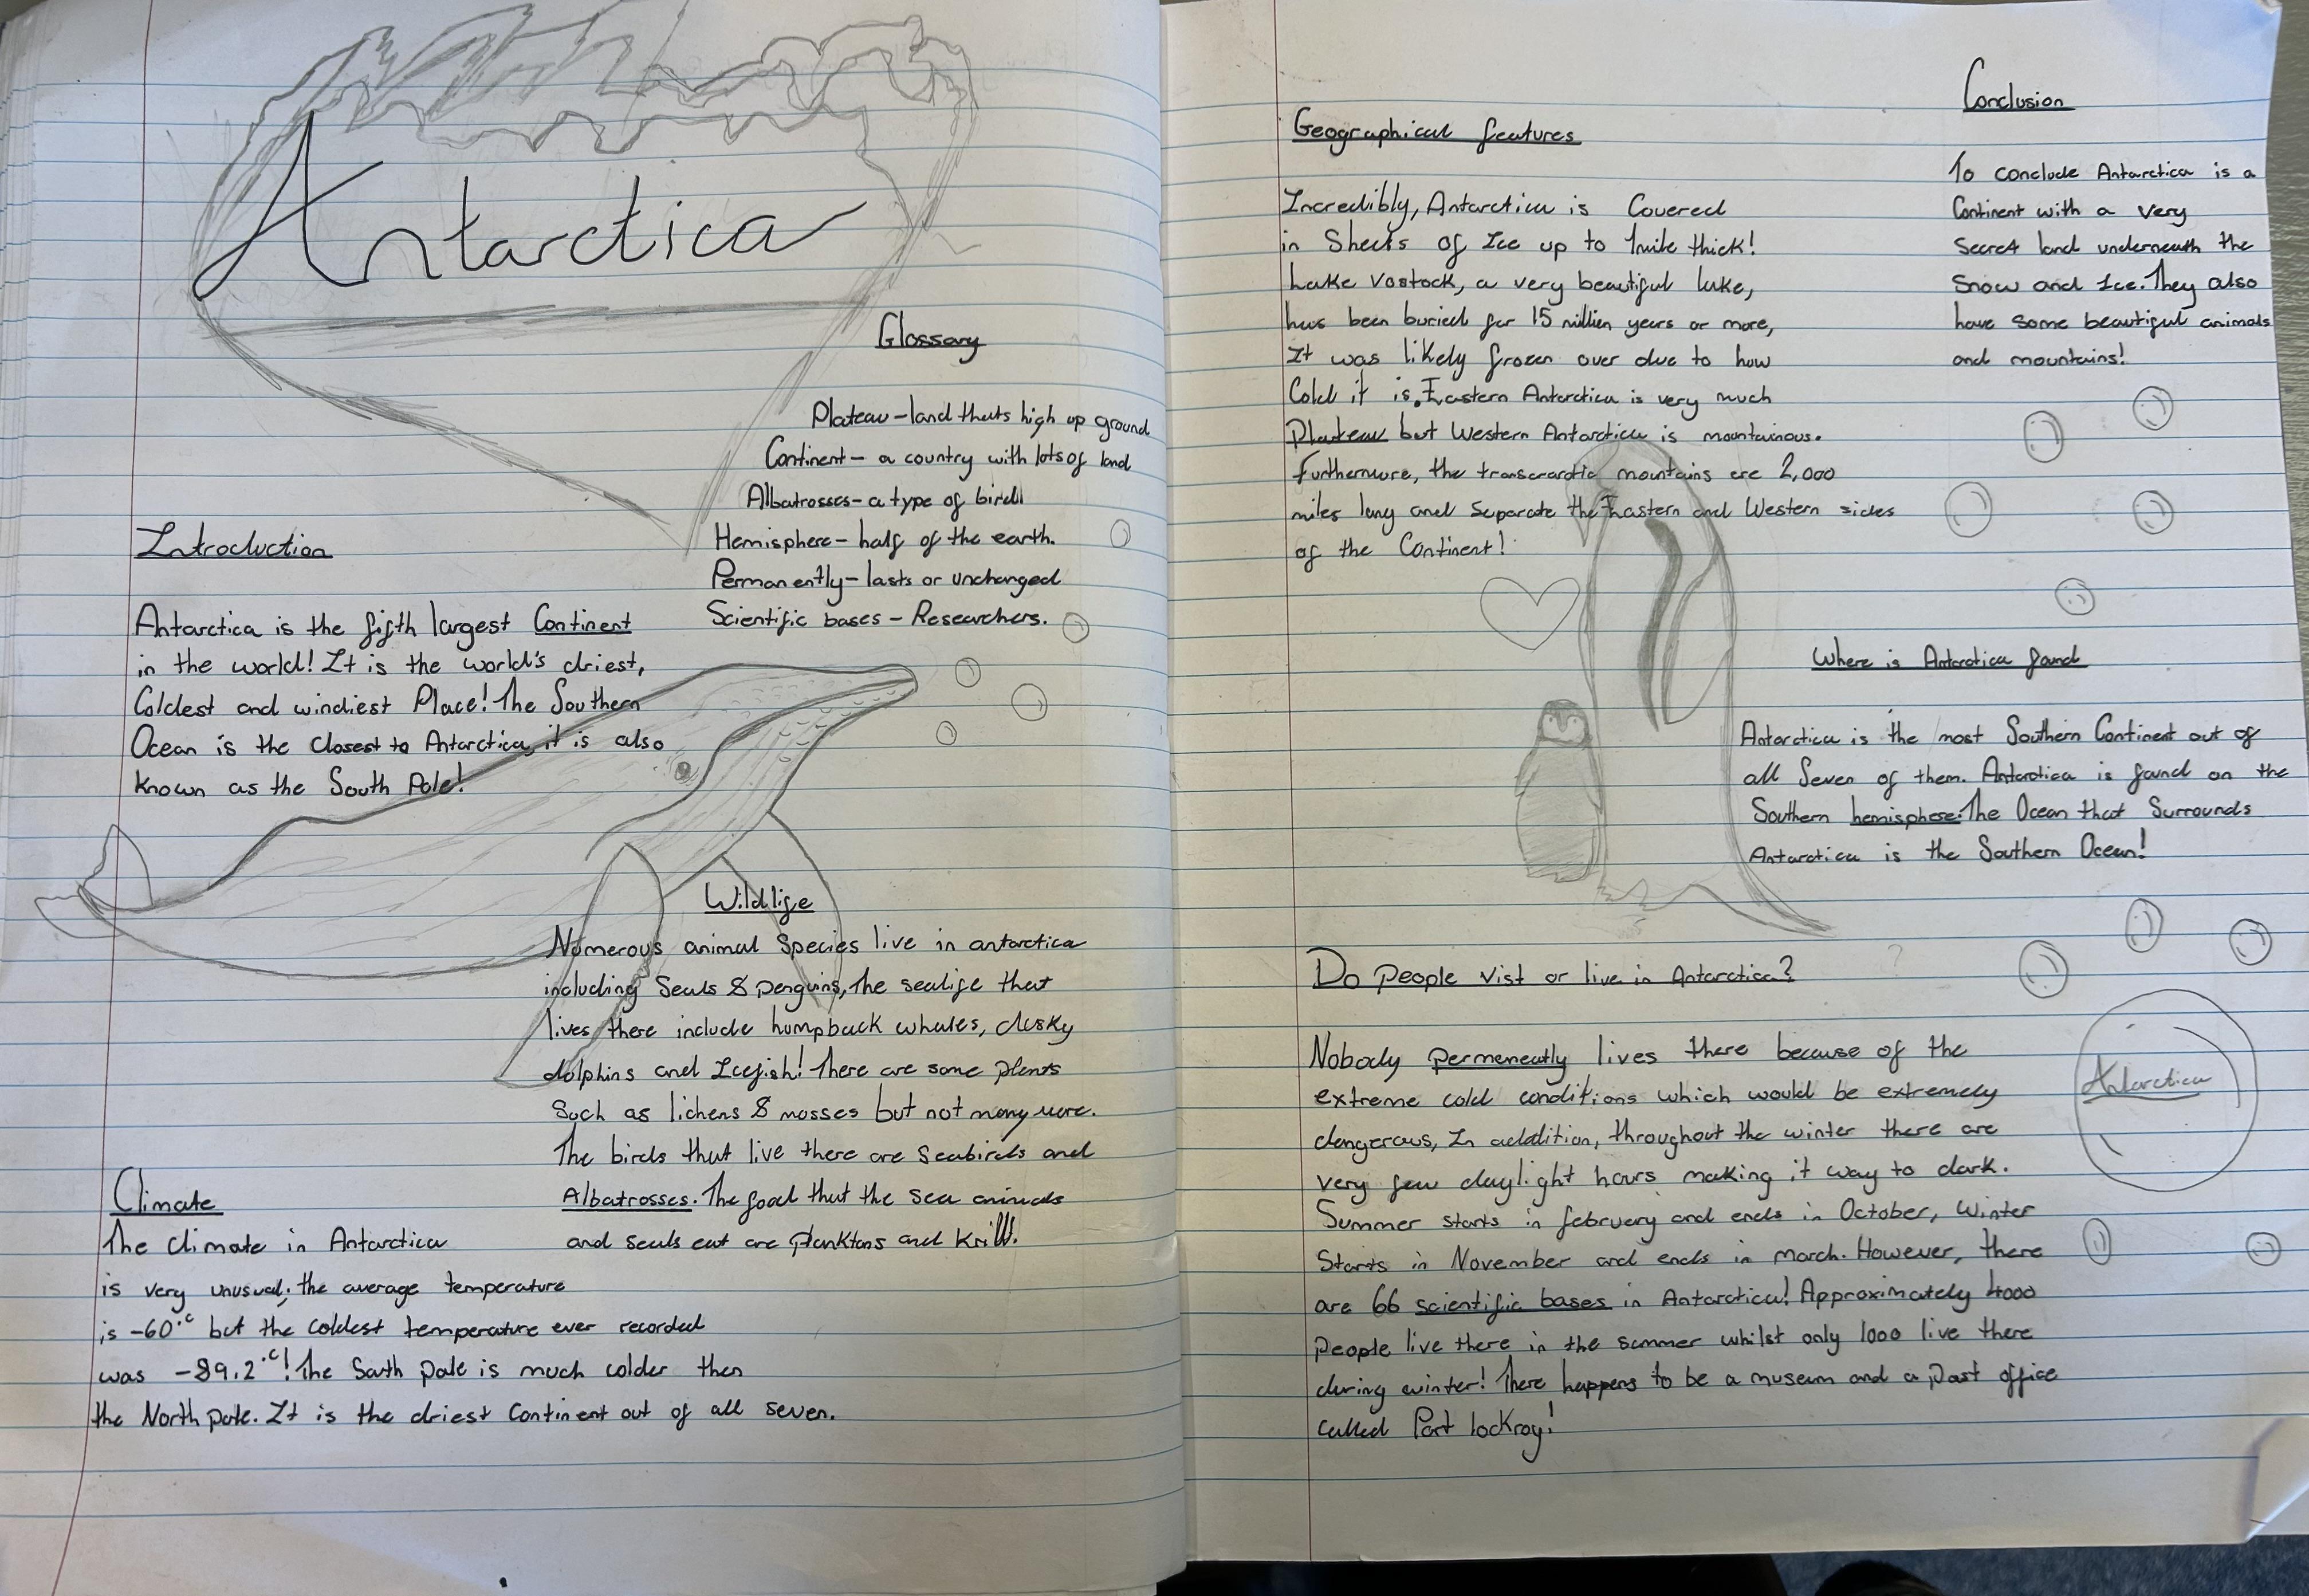 Antarctica
Glossary
Plateau - land thats high up ground
Continent - a country with lots of land
Albatrosses - a type of bird
Hemisphere - half of the earth.
Permanently - lasts or unchanged
Scientific bases - Researchers.
Introduction
Antarctica is the fifth largest Continent
in the world! It is the world's driest,
Coldest and windiest Place! The Southern
Ocean is the closest to Antarctica, it is also
known as the South Pole!
Wildlife
Numerous animal species live in antarctica
including Seals & penguins, The sealife that
lives there include humpback whales, dusky
dolphins and Icefish! There are some plants
Such as lichens & mosses but not many more.
The birds that live there are Seabirds and
Albatrosses. The food that the sea animals
and seals eat are planktons and Krill!
Climate
The climate in Antarctica
is very unusual; the average temperature
is -60°c but the coldest temperature ever recorded
was -89.2°c! The South pole is much colder then
the North pole. It is the driest Continent out of all seven.
Geographical features
Incredibly, Antarctica is Covered
in Sheets of Ice up to 1mile thick!
Lake Vostock, a very beautiful lake,
has been buried for 15 million years or more,
It was likely frozen over due to how
Cold it is. Eastern Antarctica is very much
Plateau but Western Antarctica is mountainous.
Furthermore, the mountains are 2,000
miles long and Separate the Eastern and Western sides
of the Continent!
Conclusion
To conclude Antarctica is a
Continent with a very
Secret land underneath the
Snow and Ice. They also
have some beautiful animals
and mountains!
Where is Antarctica found
Antarctica is the most Southern Continent out of
all Seven of them. Antarctica is found on the
Southern hemisphere. The Ocean that Surrounds
Antarctica is the Southern Ocean!
Do People vist or live in Antarctica?
Nobody permenently lives there because of the
extreme cold conditions which would be extremely
dangerous, In addition, throughout the winter there are
very few daylight hours making it way to dark.
Summer starts in february and ends in October, Winter
Starts in November and ends in march. However, there
are 66 scientific bases in Antarctica! Approximately 4000
People live there in the summer whilst only 1000 live there
during winter! There happens to be a museum and a post office
called Port lockroy!
Antarctica